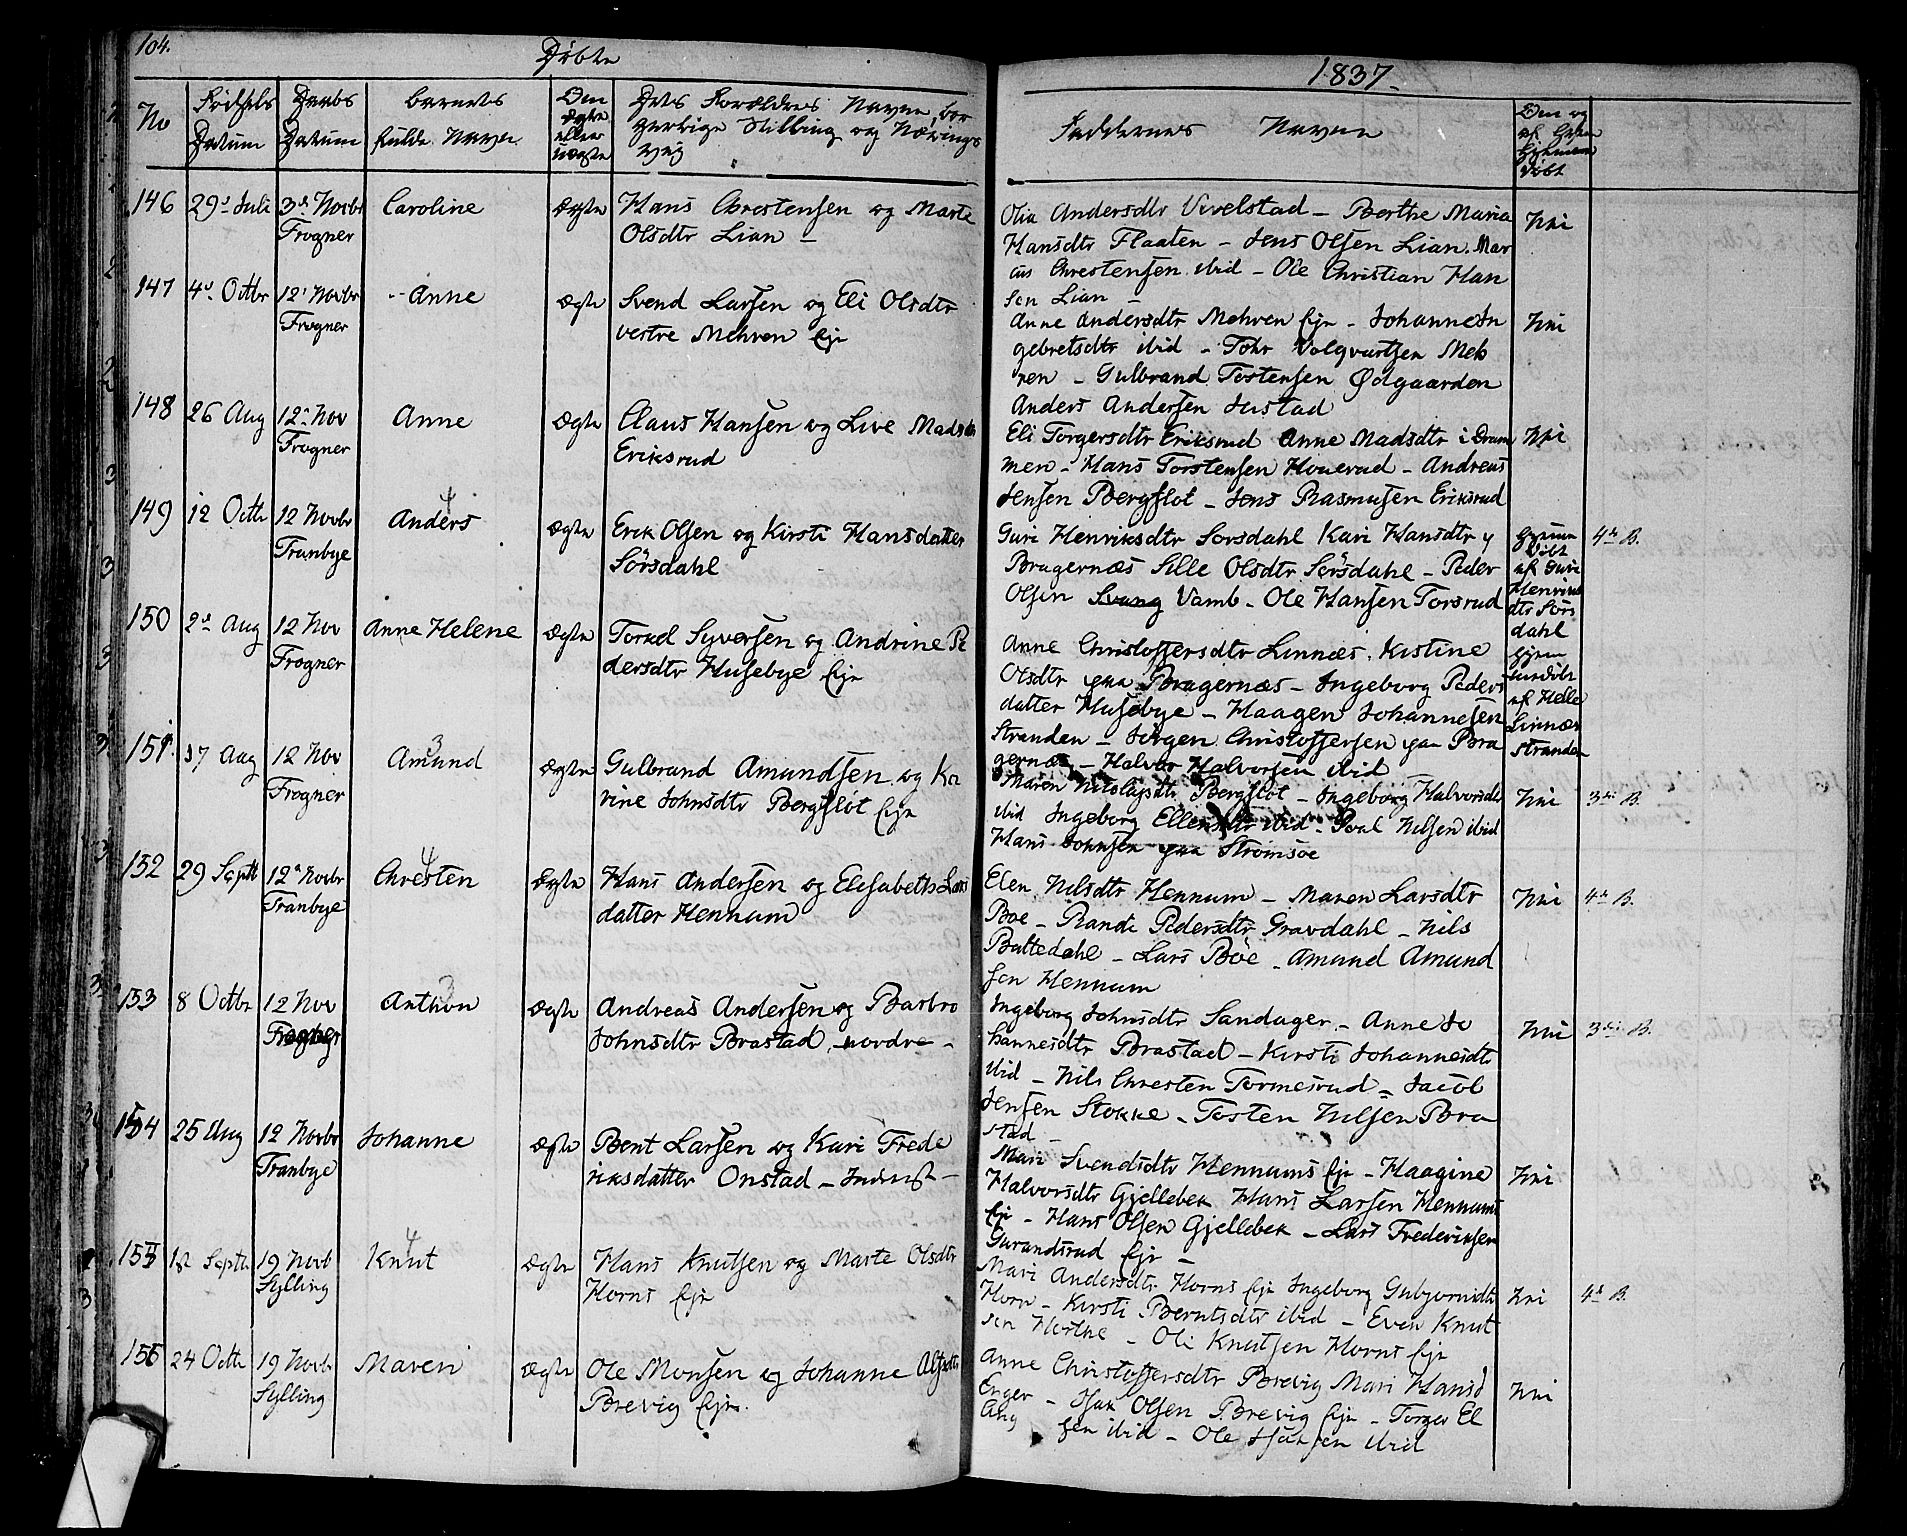 104.
Döbte
1837.
No
Födsels Datum
Daabs Datum
Barnets fulde Navn
Om ægte eller uægte
Dets Forældres Navne, borgerlige Stilling og Nærings vei
Faddernes Navne
146
29d Juli
3d Novbr
Frogner
Caroline
Ægte
Hans Chrestensen og Marte
Olsdtr Lian –
Olia Andersdtr Vivelstad – Berthe Maria
Hansdtr Flaaten – Jens Olsen Lian. Mar
cus Chrestensen ibid – Ole Christian Han
sen Lian
Nei
147
4d Octbr
12d Novbr
Frogner
Anne
Ægte
Svend Larsen og Eli Olsdtr
vestre Mehren Eje
Anne Andersdtr Mehren Eje – Johanne In
gebretsdtr ibid – Tohr Volqvartsen Meh
ren – Gulbrand Tostensen Ødgaarden
Anders Andersen Justad
Nei
148
26 Aug
12d Nov
Frogner
Anne
Ægte
Claus Hansen og Live Madsdtr
Eriksrud
Eli Torgersdtr Eriksrud Anne Madsdtr i Dram
men – Hans Torstensen Houerud – Andreas
Jensen Bergflot – Jens Rasmusen Eriksrud
Nei
149
12 Octbr
12 Novbr
Tranbye
4
Anders
Ægte
Erik Olsen og Kirsti Hansdatter
Sörsdahl
Guri Henriksdtr Sorsdahl Kari Hansdtr
Bragernæs Sille Olsdtr Sörsdahl – Peder
Olsen Svang Vamb – Ole Hansen Torsrud
Hjemme
döbt
af Guri
Henriks
dtr Sörs
dahl
4de B.
150
2d Aug
12 Nov
Frogner
Anne Helene
Ægte
Torkel Syversen og Andrine Pe
dersdtr Husebye Eje
Anne Christoffersdtr Linnæs. Kistine
Olsdtr paa Bragernæs – Ingeborg Peders
datter Husebye – Haagen Johannesen
Stranden – Jörgen Christoffersen paa Bra
gernæs – Halvor Halvorsen ibid
af Helle
Linnæs
Stranden
151
17 Aug
12 Nov
Frogner
3
Amund
Ægte
Gulbrand Amundsen og Ka
rine Johnsdtr Bergflot Eje
Maren Nilsdtr Bergflot – Ingeborg Halvorsdtr
ibid Ingeborg Ellensdtr ibid – Poul Nilsen ibid
Hans Johnsen paa Strømsoe
Nei
3die B.
152
29 Septb
12d Novbr
Tranbye
4
Chresten
Ægte
Hans Andersen og Elisabeth Lars
datter Hennum
Elen Nilsdtr Hennum – Maren Larsdtr
Boe – Randi Pedersdtr Gravdahl – Nils
Battedahl – Lars Böe – Amund Amund
sen Hennum
Nei
4de B.
153
8 Octbr
12 Nov
Frogner
3
Anthon
Ægte
Andreas Andersen og Barbro
Johnsdtr Brastad, nordre –
Ingeborg Johnsdtr Sandager – Anne Jo
hannesdtr Brastad – Kirsti Johannesdtr
ibid – Nils Chresten Tormesrud – Jacob
Jensen Stokke – Tosten Nilsen Bra
stad –
Nei
3die B.
154
25 Aug
12 Novbr
Tranbye
Johanne
Ægte
Bent Larsen og Kari Frede
riksdatter Onstad – Inderst –
Mari Svendsdtr Hennums Eje – Haagine
Halvorsdtr Gjellebek Hans Larsen Hennums
Eje – Hans Olsen Gjellebek – Lars Frederiksen
Gurandsrud Eje –
Nei
155
18 Septbr
19 Novb
Sylling
4
Knut
Ægte
Hans Knutsen og Marte Olsdtr
Horns Eje
Mari Andersdtr Horns Eje Ingeborg Gubjörnsdtr
Horn – Kirsti Berntsdtr ibid – Even Knut
sen Horthe – Oli Knutsen Horns Eje
Nei
4de B.
156
24 Octbr
19 Novbr
Sylling
Maren
Ægte
Ole Monsen og Johanne
Brevig Eje.
Anne Christoffersdtr Brevig Mari Hansd
Enger – Isak Olsen Brevig Eje – Torger El
sen ibid – Ole ibid
Nei